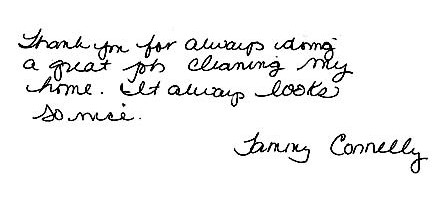 Thank you for always doing
a great job cleaning my
home. It always looks
so nice.
Tammy Connelly